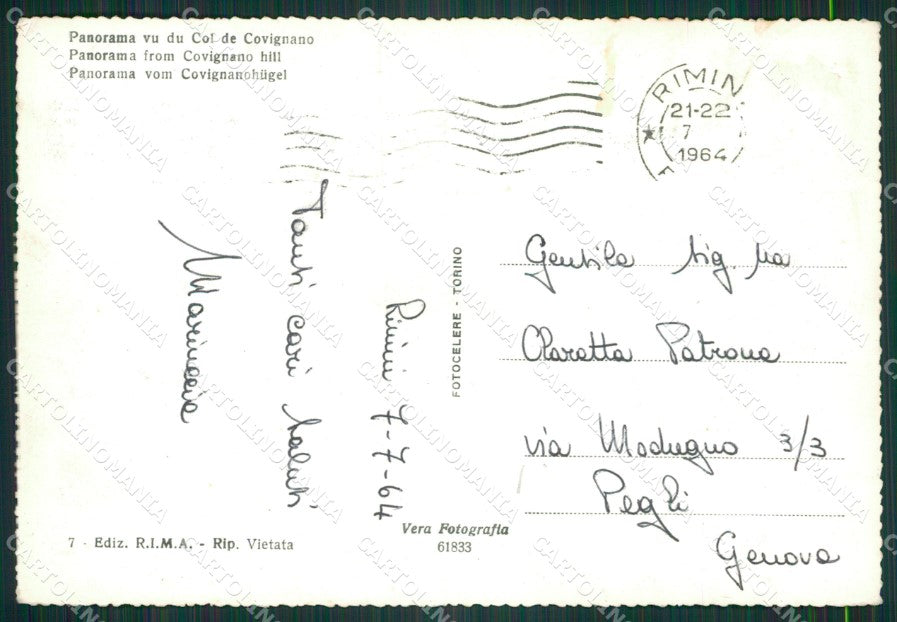 Panorama vu du Col de Covignano
Panorama from Covignano hill
Panorama vom Covignanohügel
RIMIN
21-22
7
1964
Rimini 7-7-64
Tanti cari saluti
Marinccia
FOTOCELERE - TORINO
Gentile Sig.na
Claretta Patrone
via Modugno 3/3
Pegli
Genova
Vera Fotografia
61833
7 - Ediz. R.I.M.A. - Rip. Vietata
CARTOLINOMANIA